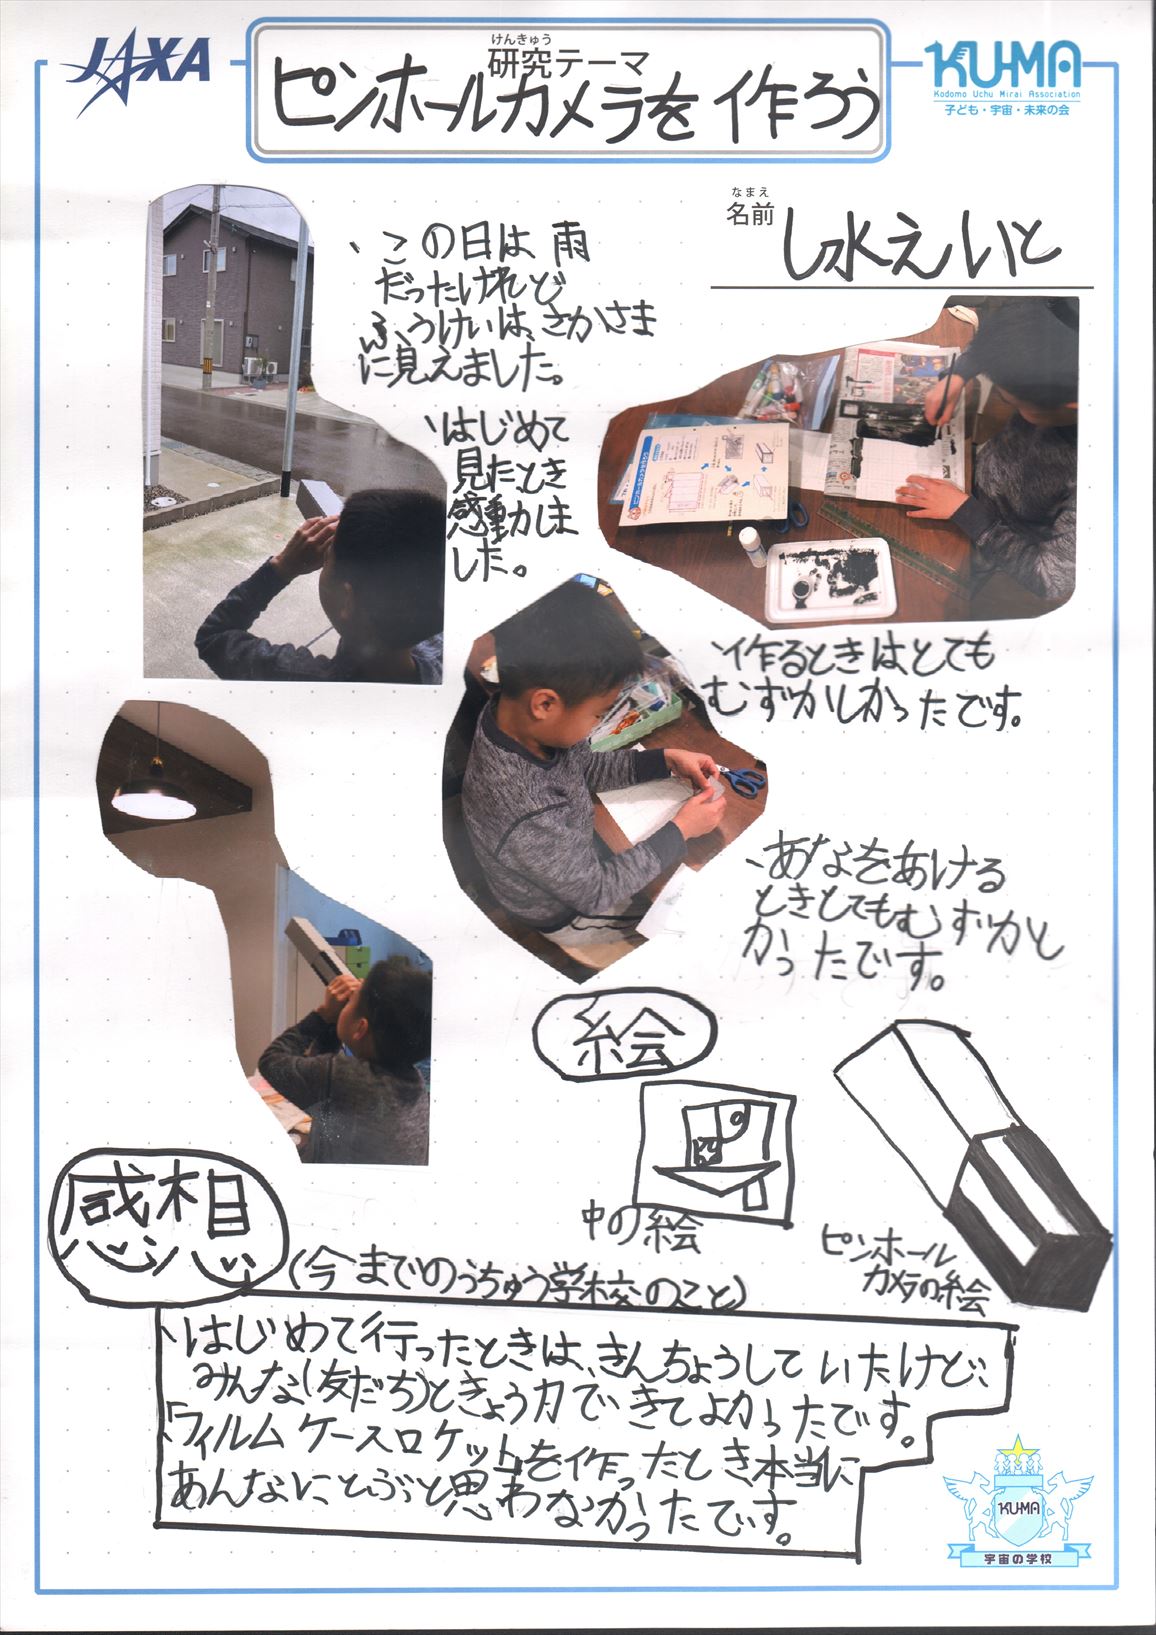 JAXA
けんきゅう
研究テーマ
ピンホールカメラを作ろう
KU-MA
Kodomo Uchu Mirai Association
子ども・宇宙・未来の会
なまえ
名前
し水えいと
、この日は雨
だったけれど
ふうけいは、さかさま
に見えました。
、はじめて
見たとき
感動しま
した。
、作るときはとても
むずかしかったです。
、あなをあける
ときとてもむずかし
かったです。
絵
中の絵
ピンホール
カメラの絵
感想
(今までのうちゅう学校のこと)
、はじめて行ったときは、きんちょうしていたけど、
みんな(友だち)ときょう力できてよかったです。
「フィルムケースロケット」を作ったとき本当に
あんなに、とぶっと思わなかったです。
KU-MA
宇宙の学校